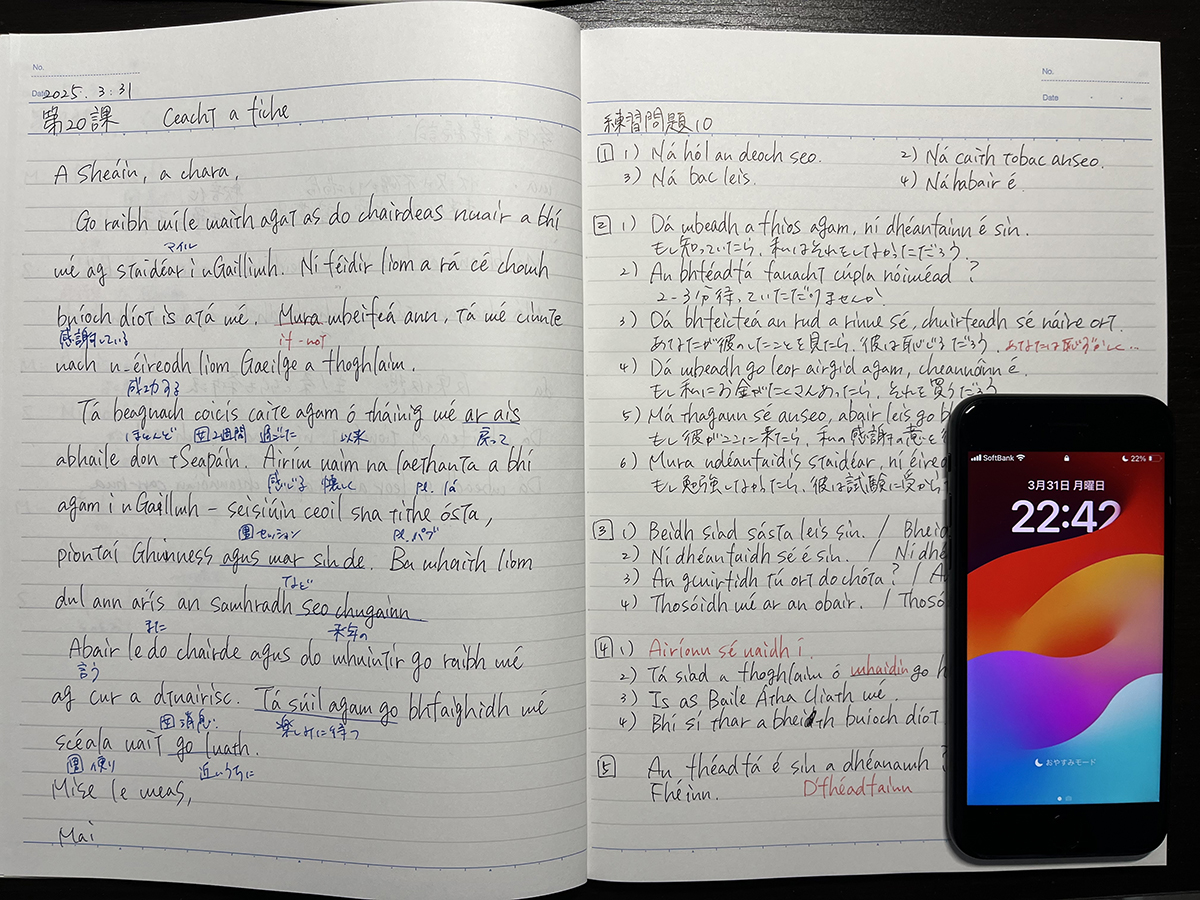 No.
Date 2025. 3. 31
第20課 Ceacht a fiche
A Sheáin, a chara,
Go raibh míle maith agat as do chairdeas nuair a bhí
マイル
mé ag staidéar i nGaillimh. Ní féidir liom a rá cé chomh
buíoch díot is atá mé. Mura mbeifeá ann, tá mé cinnte
感謝している if-not
nach n-éireodh liom Gaeilge a fhoghlaim.
成功する
Tá beagnach coicís caite agam ó tháinig mé ar ais
ほとんど 2週間 過ごした 以来 戻って
abhaile don tSeapáin. Airím uaim na laethanta a bhí
感じる 懐しく pl. lá
agam i nGaillimh - seisiúin ceoil sna tithe ósta,
セッション pl. パブ
piontaí Ghuinness agus mar sin de. Ba mhaith liom
など
dul ann arís an samhradh seo chugainn
また 来年の
Abair le do chairde agus do mhuintir go raibh mé
言う
ag cur a dtuairisc. Tá súil agam go bhfaighidh mé
消息 楽しみに待つ
scéala uait go luath.
便り 近いうちに
Mise le meas,
Mai
No.
Date
練習問題10
1 1) Ná hól an deoch seo. 2) Ná caith tobac anseo.
3) Ná bac leis. 4) Ná habair é.
2 1) Dá mbeadh a fhios agam, ní dhéanfainn é sin.
もし知っていたら、私はそれをしなかっただろう
2) An bhféadfá fanacht cúpla nóiméad?
2-3分待っていただけませんか
3) Dá bhfeicfeá an rud a rinne sé, chuirfeadh sé náire ort.
あなたが彼のしたことを見たら、彼は恥じるだろう. あなたは恥ずかしく…
4) Dá mbeadh go leor airgid agam, cheannóinn é.
もし私にお金がたくさんあったら、それを買うだろう
5) Má thagann sé anseo, abair leis go b
もし彼がここに来たら、私の感謝の意を
6) Mura ndéanfaidís staidéar, ní éireo
もし勉強しなかったら、彼は試験に受から
3 1) Beidh siad sásta leis sin. / Bheid
2) Ní dhéanfaidh sé é sin. / Ní dhé
3) An gcuirfidh tú ort do chóta? / A
4) Thosóidh mé ar an obair. / Thosó
4 1) Airíonn sé uaidh í.
2) Tá siad a fhoghlaim ó mhaidin go h
3) Is as Baile Átha Cliath mé.
4) Bhí sí thar a bheith buíoch díot
5 An fhéadfá é sin a dhéanamh?
Fhéinn. D'fhéadfainn
SoftBank 22%
3月31日 月曜日
22:42
おやすみモード